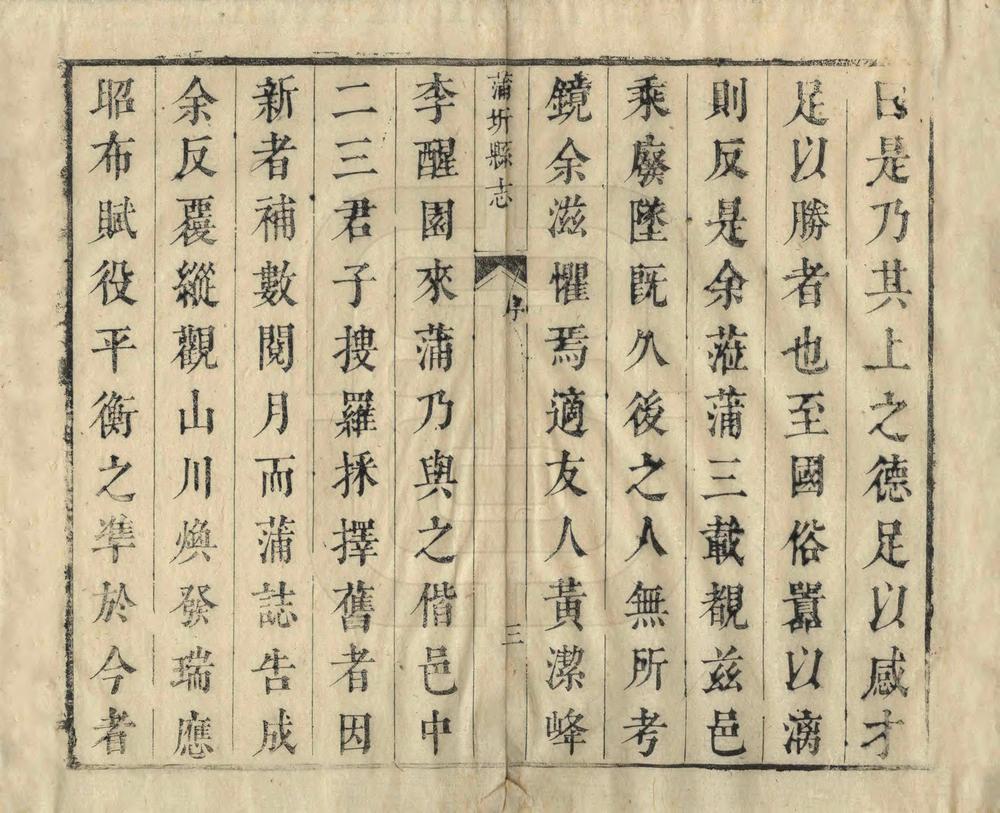 曰是乃其上之德足以感才
足以勝者也至國俗囂以漓
則反是余蒞蒲三載覩兹邑
乘廢墜既久後之人無所考
鏡余滋懼焉適友人黃潔峰
蒲圻縣志
序
三
李醒園來蒲乃與之偕邑中
二三君子搜羅採擇舊者因
新者補數閱月而蒲誌告成
余反覆縱觀山川煥發瑞應
昭布賦役平衡之準於今者